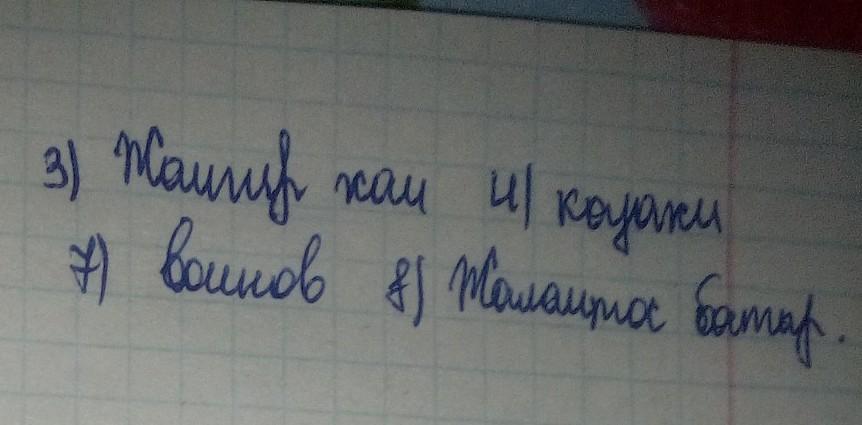 3) Жангир хан 4) казахи
7) воинов 8) Жалантос батыр.